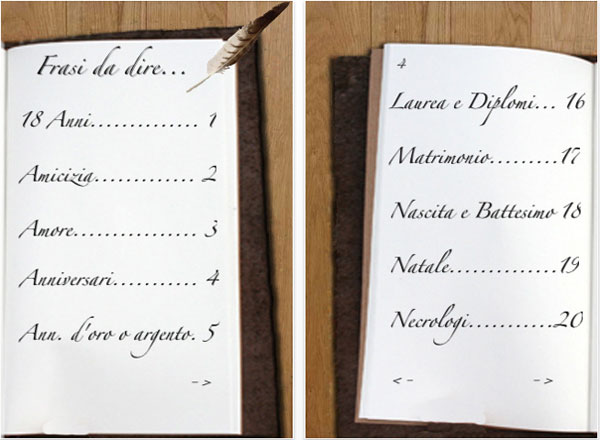 Frasi da dire...
18 Anni.............. 1
Amicizia............. 2
Amore................ 3
Anniversari........... 4
Ann. d'oro o argento. 5
->
4
Laurea e Diplomi... 16
Matrimonio.........17
Nascita e Battesimo 18
Natale..............19
Necrologi...........20
<- ->